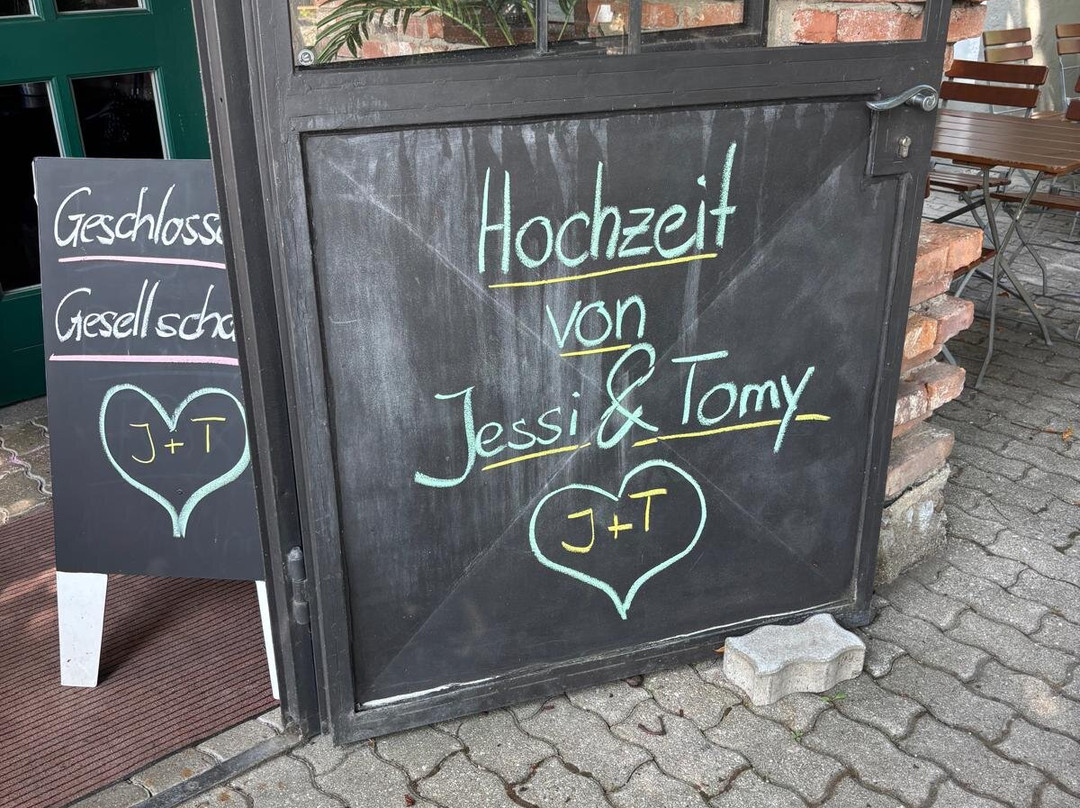 Geschlosse
Gesellscha
J + T
Hochzeit
von
Jessi & Tomy
J + T